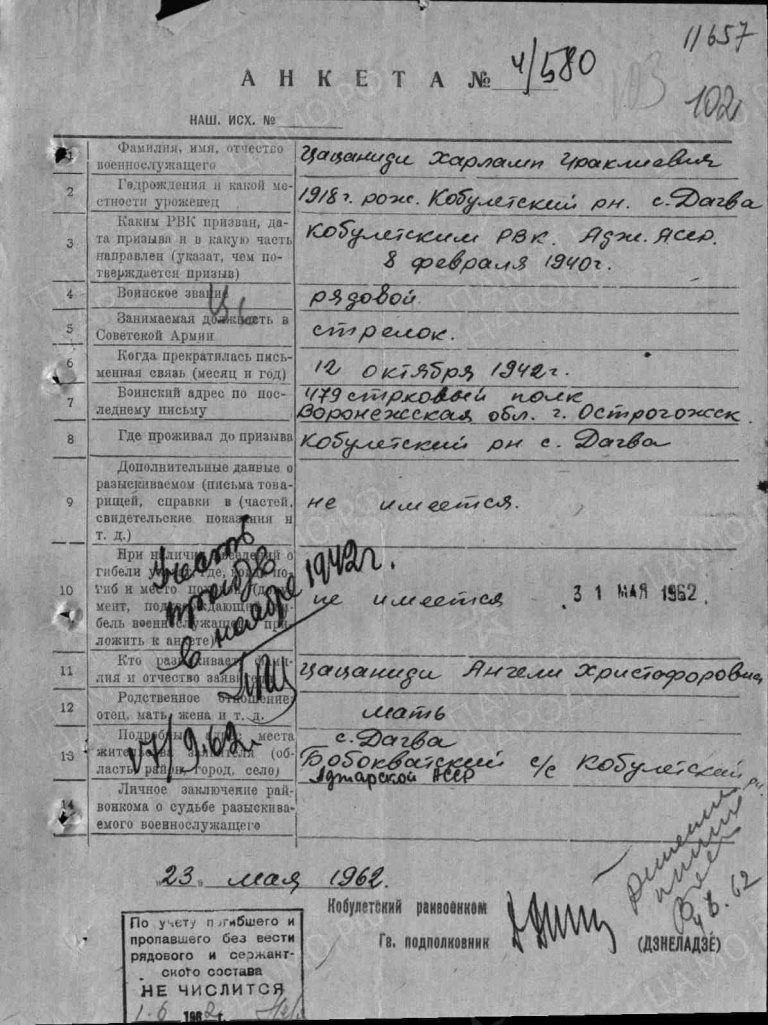 11657
АНКЕТА № 4/580
103
102
НАШ. ИСХ. №
1 Фамилия, имя, отчество военнослужащего
Цацаниди Харламп Ираклиевич
2 Год рождения и какой местности уроженец
1918 г. рож. Кобулетский рн. с. Дагва
3 Каким РВК призван, да-
та призыва и в какую часть
направлен (указат, чем по-
тверждается призыв)
Кобулетским РВК. Адж. АССР.
8 февраля 1940г.
4 Воинское звание
рядовой
5 Занимаемая должность в
Советской Армии
стрелок.
6 Когда прекратилась пись-
менная связь (месяц и год)
12 октября 1942г.
7 Воинский адрес по пос-
леднему письму
479 стрковый полк
Воронежсская обл. г. Острогожск
8 Где проживал до призыва
Кобулетский рн с. Дагва
9 Дополнительные данные о
разыскиваемом (письма това-
рищей, справки в (частей,
свидетельские показания и
т. д.)
не имеется.
10 При наличии сведений о
гибели
ложить к анкете)
не имеется
31 МАЯ 1962.
11 Кто разыскивает
лия и отчество
Цацаниди Ангели Христофоровна
12 Родственное отношение
отец, мать, жена и т. д.
мать
13 Подробный адрес места
жительства заявителя (об-
ласть, район, город, село)
с. Дагва
Бобокватский с/с Кобулетский рн.
Аджарской АССР
14 Личное заключение рай-
воонкома о судьбе разыскива-
емого военнослужащего
в ноябре 1942г.
/9.62г.
„23„ мая 1962.
Кобулетский раивоенком
Гв. подполковник
(ДЗНЕЛАДЗЕ)
По учету погибшего и
пропавшего без вести
рядового и сержант-
ского состава
НЕ ЧИСЛИТСЯ
1.6 1962г.